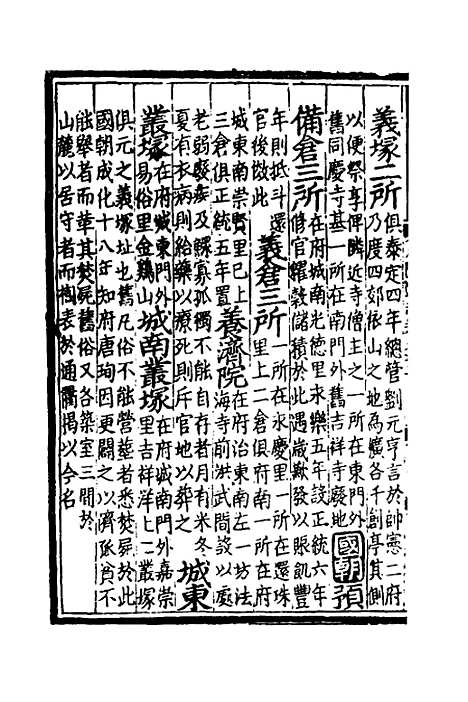 義塚二所俱泰定四年總管劉元亨言於帥憲二府
乃度四郊依山之地為壙各千創亭其側
以便祭享俾隣近寺僧主之一所在東門外
舊同慶寺基一所在南門外舊吉祥寺廢地國朝預
備倉三所在府城南光德里永樂五年設正統六年
修官糴穀儲積於此遇歲歉發以賑飢豐
年則抵斗還
官後倣此義倉三所一所在永慶里一所在還珠
里上二倉俱府南一所在府
城東南崇賢里已上
三倉俱正統五年置養濟院在府治東南左一坊法
海寺前洪武間設以處
老弱癈疾及鰥寡孤獨不能自存者月有米冬
夏有衣病則給藥以療死則斥官地以葬之城東
叢塚在府城東門外
易俗里金鷄山城南叢塚在府城南門外嘉崇
里吉祥洋上二叢塚
俱元之義塚址也舊凡俗不能營塟者悉焚屍於此
國朝成化十八年知府唐珣因更闢之以濟貧不
能舉者而革其焚屍舊俗又各築室三間於
山麓以居守者而揭表於通衢揭以今名